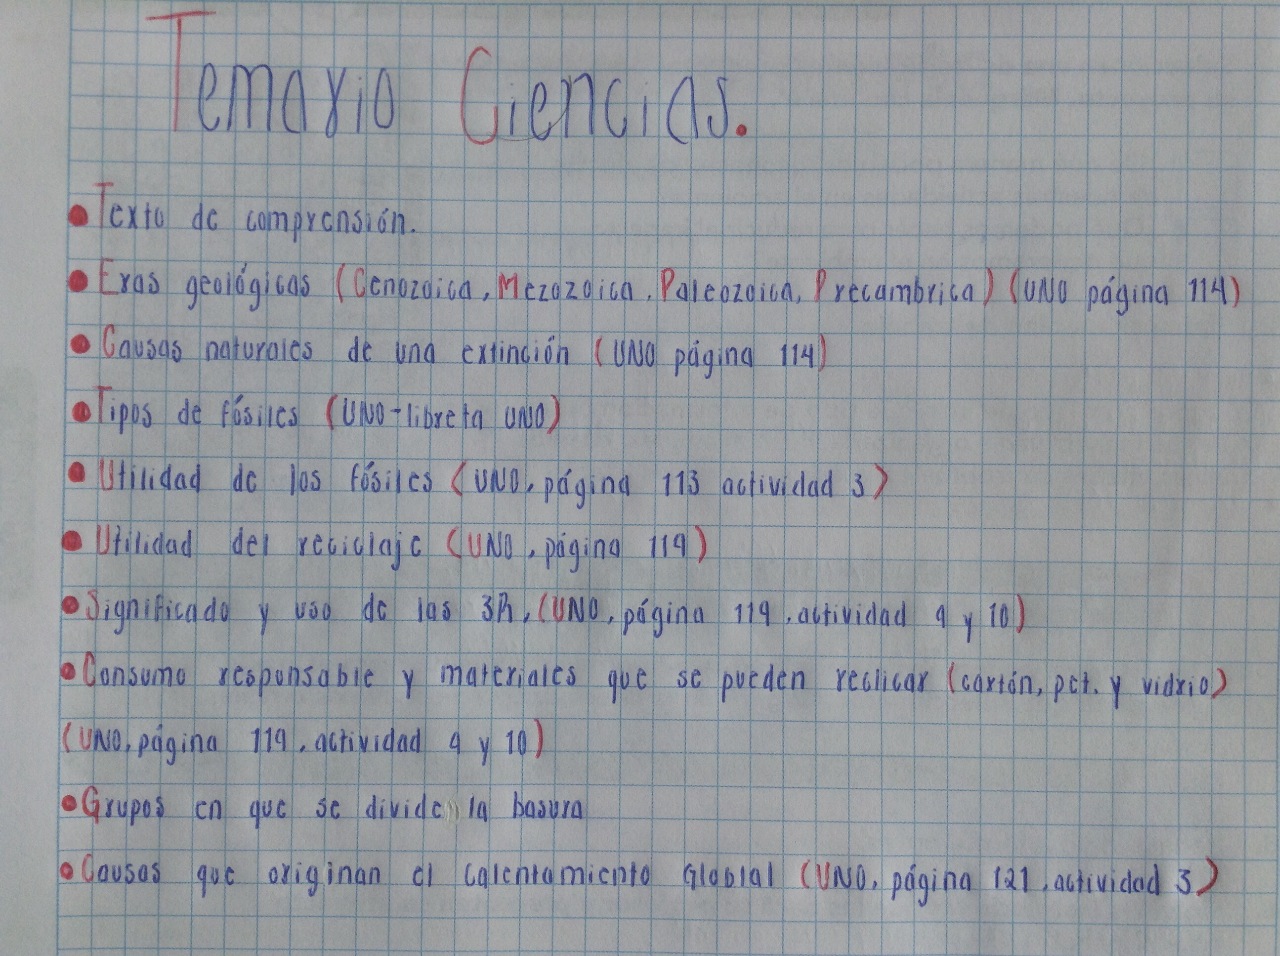 Temario Ciencias.
• Texto de comprensión.
• Eras geológicas (Cenozoica, Mezozoica, Paleozoica, Precambrica) (UNO página 114)
• Causas naturales de una extinción (UNO página 114)
• Tipos de fósiles (UNO-libreta UNO)
• Utilidad de los fósiles (UNO, página 113 actividad 3)
• Utilidad del reciclaje (UNO, página 119)
• Significado y uso de las 3R, (UNO, página 119, actividad 9 y 10)
• Consumo responsable y materiales que se pueden reclicar (cartón, pet. y vidrio)
(UNO, página 119, actividad 9 y 10)
• Grupos en que se divide la basura
• Causas que originan el calentamiento Globlal (UNO, página 121, actividad 3)